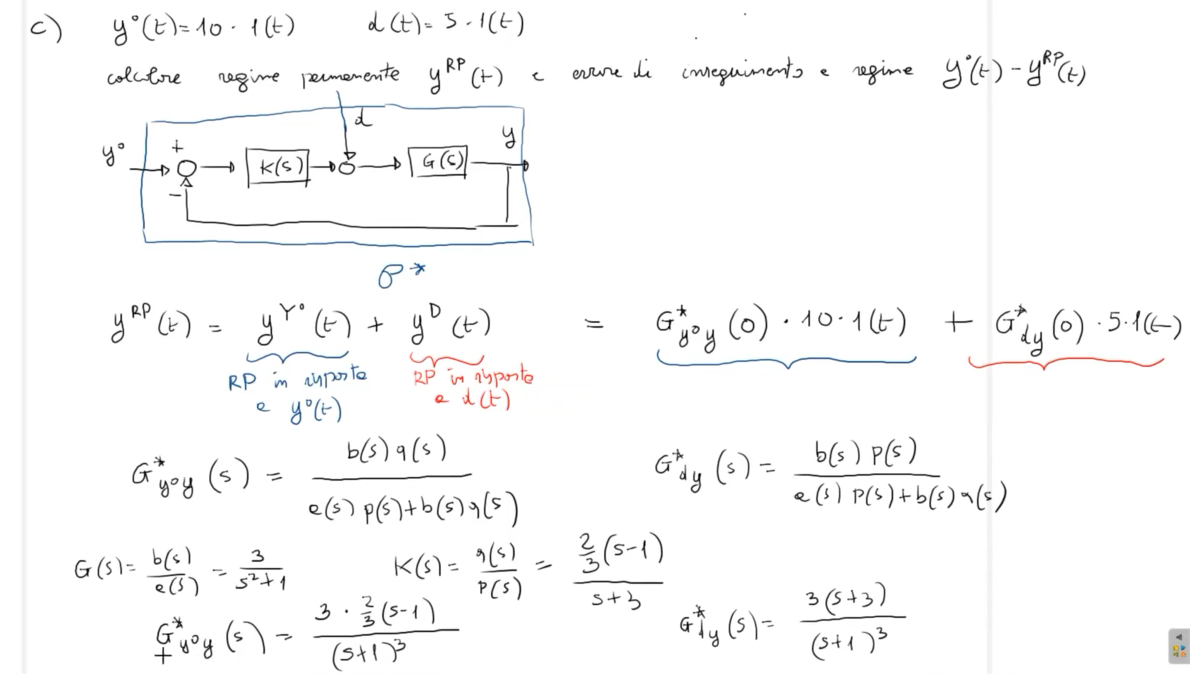 c) y°(t)=10·1(t) d(t)=5·1(t)
calcolare regime permanente y^RP(t) e errore di inseguimento a regime y°(t) - y^RP(t)
d
y° + K(s) G(s) y
−
σ*
y^RP(t) = y^Y°(t) + y^D(t) = G*_y°y(0)·10·1(t) + G*_dy(0)·5·1(t)
RP in risposta a y°(t)
RP in risposta a d(t)
G*_y°y(s) = b(s)q(s) / (a(s)p(s)+b(s)q(s)) G*_dy(s) = b(s)p(s) / (a(s)p(s)+b(s)q(s))
G(s) = b(s)/a(s) = 3/(s²+1) K(s) = q(s)/p(s) = 2/3(s-1) / (s+3)
G*_y°y(s) = 3·2/3(s-1) / (s+1)³ G*_dy(s) = 3(s+3) / (s+1)³